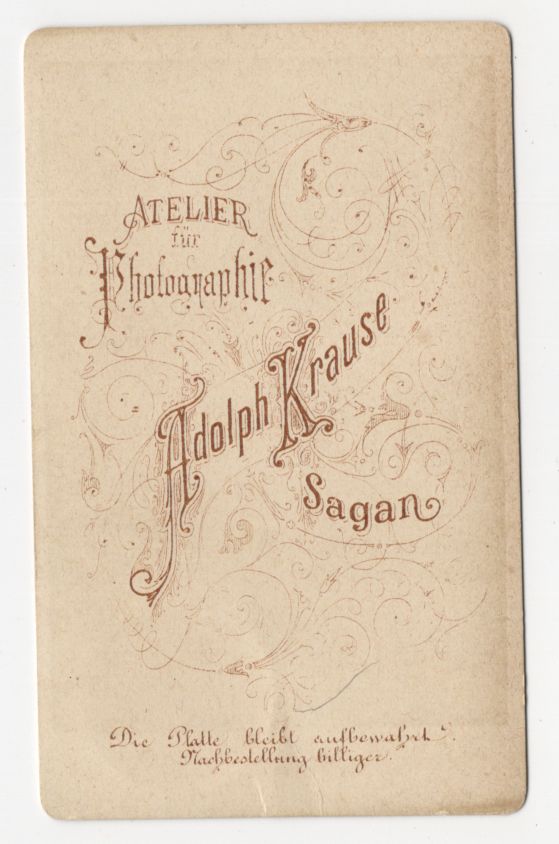 ATELIER
für
Photographie
Adolph Krause
Sagan
Die Platte bleibt aufbewahrt.
Nachbestellung billiger.